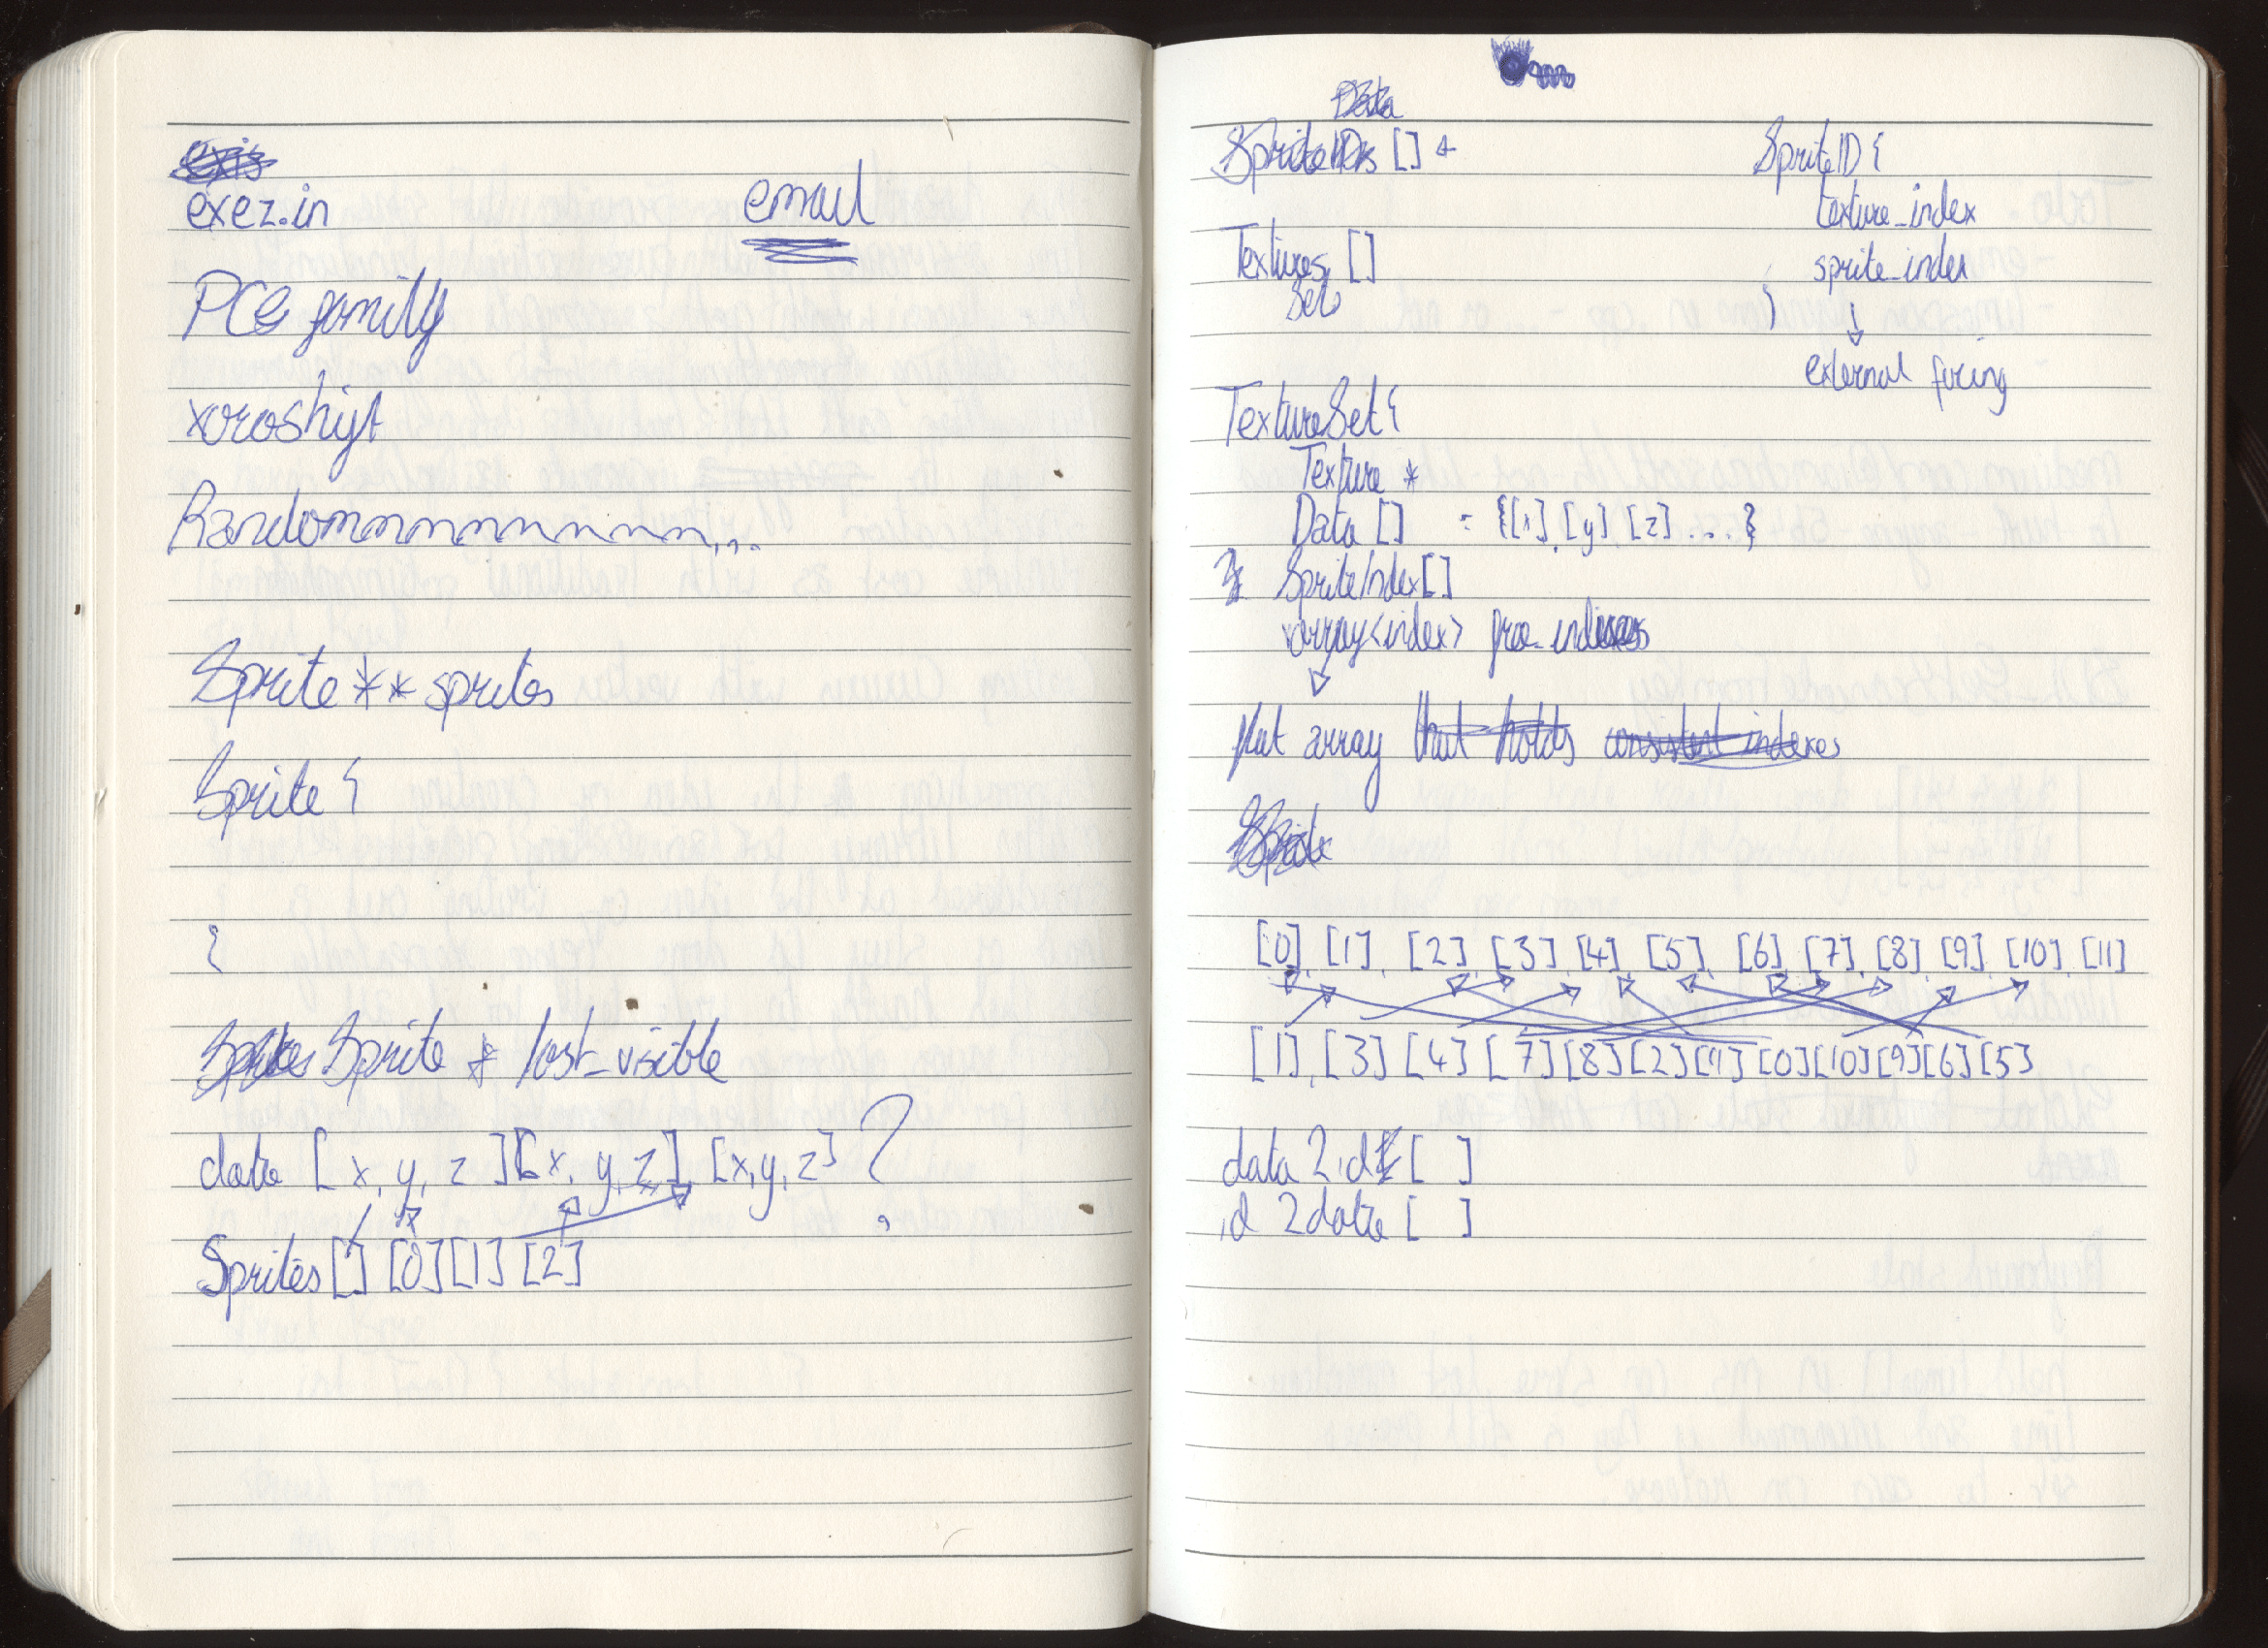 exez.in
email
PCG family
xoroshift
Randomnnnnnnnn...
Sprite ** sprites
Sprite {
{
Sprite * last_visible
data [x, y, z][x, y, z], [x, y, z] ?
Sprites [] [0] [1] [2]
Data
SpriteIDs [] *
Textures []
Sets
SpriteID {
texture_index
sprite_index
}
external facing
TextureSet {
Texture *
Data [] = {[x], [y] [z] ... }
} SpriteIndex []
varray<index> free_indexes
flat array that holds consistent indexes
Sprite
[0], [1], [2], [3], [4], [5], [6], [7], [8], [9], [10], [11]
[1], [3] [4] [7] [8] [2] [11] [0] [10] [9] [6] [5]
data2id [ ]
id2data [ ]